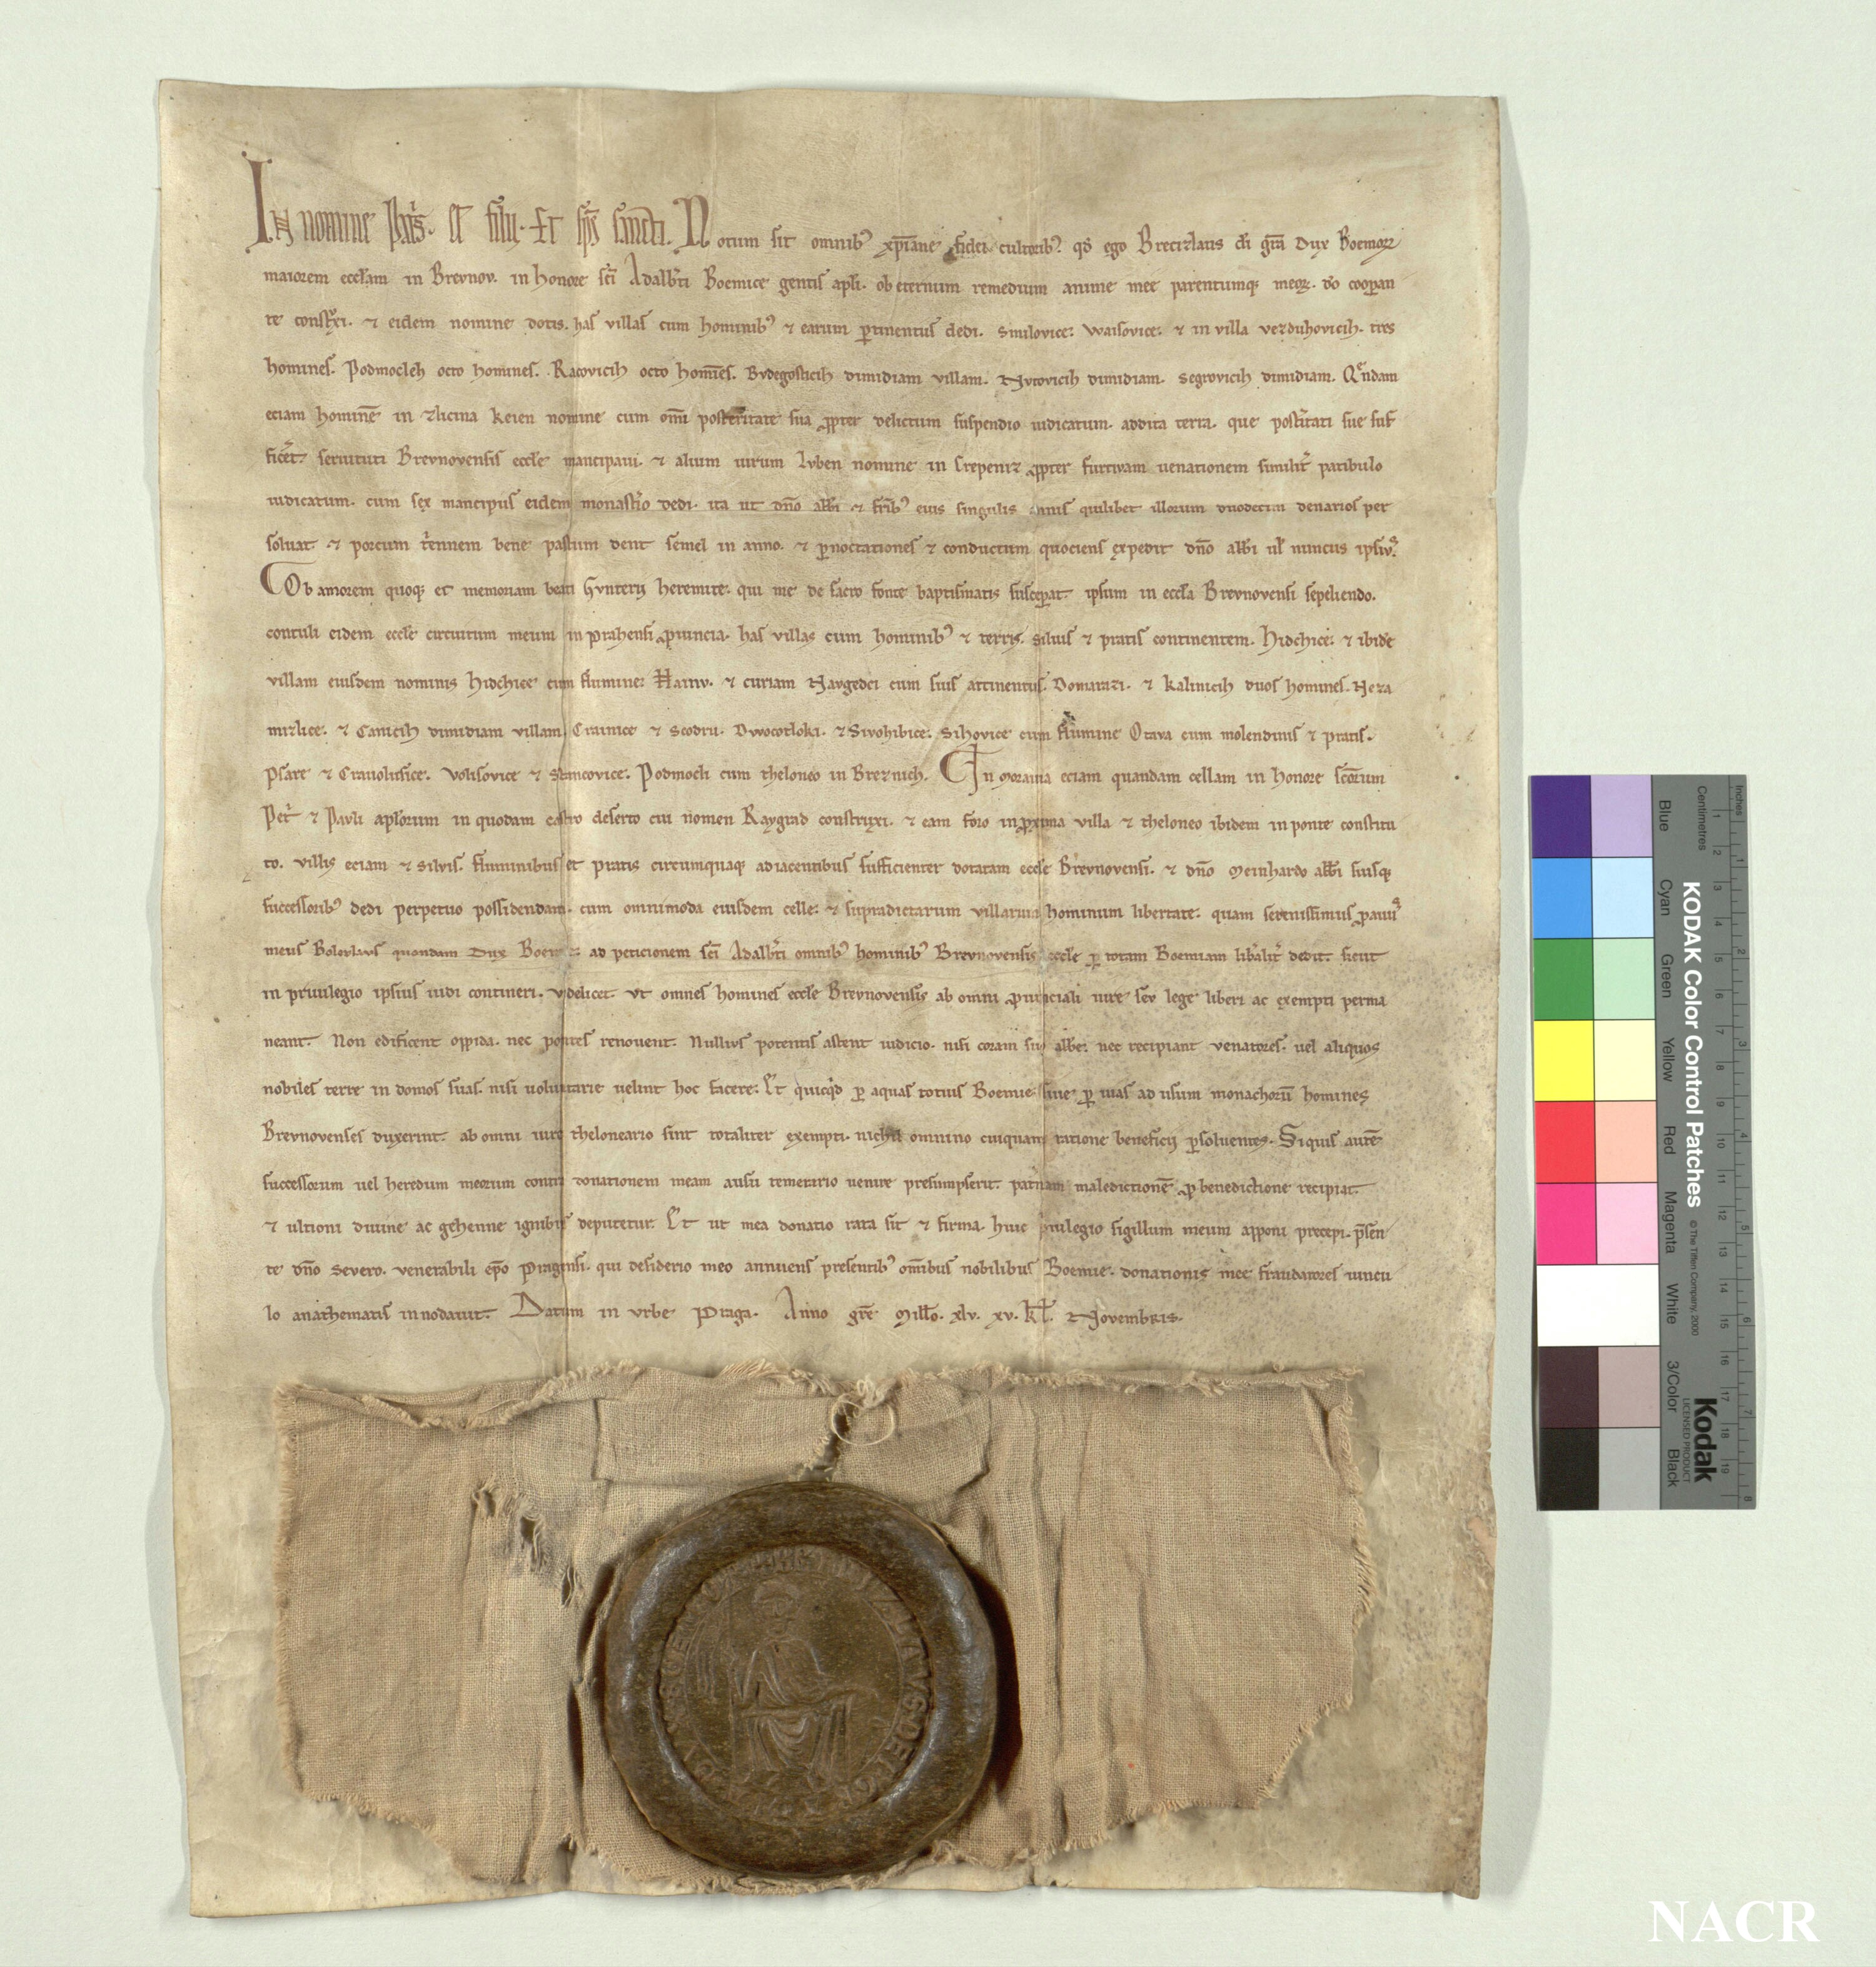 In nomine Pat̃s. et filii. Et sp̃s sancti. Notum sit omnibꝰ xp̃iane fidei cultoribꝰ. qđ ego Brecizlaus di gr̃a Dux Boemoꝝ
maiorem eccłam in Brevnov. in honore sc̃i Adalb̃ti Boemice gentis apłi. ob eternum remedium anime mee parentumqꝫ meoꝝ. do cooꝑan
te const̃xi. ⁊ eidem nomine dotis. has villas cum hominibꝰ ⁊ earum ꝑtinentiis dedi. Smilovice. Waisovice. ⁊ in villa vezduhovicih. tres
homines. Podmocleh octo homines. Racovicih octo hom̃es. Bydegosticih dimidiam villam. Nytovicih dimidiam. Segrovicih dimidiam. Qͤndam
eciam hominẽ in zlicina Keien nomine cum om̃i posteritate sua ꝓpter delictum suspendio iudicatum. addita terra. que post̃itati sue suf
fic̃et. seruituti Brevnovensis eccłe mancipaui. ⁊ alium uirum Lvben nomine in Crepeniz ꝓpter furtivam uenationem similit̃ patibulo
iudicatum. cum sex mancipiis eidem monast̃io dedi. ita ut dño abb̃i ⁊ fr̃ibꝰ eius singulis annis quilibet illorum duodecim denarios per
soluat. ⁊ porcum t̃ennem bene pastum dent semel in anno. ⁊ ꝑnoctationes ⁊ conductum quociens expedit dño abb̃i uł nuncus ipsiꝰ.
Ob amorem quoqꝫ et memoriam beati Gvnterii heremite. qui me de sacro fonte baptismatis susceꝑat. ipsum in eccła Brevnovensi sepeliendo.
contuli eidem eccłe circuitum meum in prahensi ꝓuincia. has villas cum hominibꝰ ⁊ terris. siluis ⁊ pratis continentem. Hidchice. ⁊ ibidẽ
villam eiusdem nominis Hidchice cum flumine. ⁊ curiam Naygedci cum suis attinentiis. Domarazi. ⁊ Kalinicih duos homines. Neza
mizlice. ⁊ Canicih dimidiam villam. Crainice ⁊ Scodru. Dwocotloki. ⁊ Sivohibice. Sihovice cum flumine Otava cum molendinis ⁊ pratis.
Psare ⁊ Cravolusice. Volisovice ⁊ Stancovice. Podmocli cum theloneo in Breznich. In Morauia eciam quandam cellam in honore sc̃orum
Pet̃ ⁊ Pavli apłorum in quodam castro deserto cui nomen Raygrad construxi. ⁊ eam foro in ꝓxima villa ⁊ theloneo ibidem in ponte constitu
to. villis eciam ⁊ silvis. fluminibus et pratis circumquaqꝫ adiacentibus sufficienter dotatam eccłe Brevnovensi. ⁊ dño Meinhardo abb̃i suisqꝫ
successoribꝰ dedi perpetuo possidendam. cum omnimoda eiusdem celle. ⁊ supradictarum villarum hominum libertate. quam serenissimus ꝓauꝰ
meus Bolezlavs quondam Dux Boemoꝝ ad peticionem sc̃i Adalb̃ti omnibꝰ hominibꝰ Brevnovensis eccłe ꝑ totam Boemiam lib̃alit̃ dedit. sicut
in priuilegio ipsius uidi contineri. Videlicet. Vt omnes homines eccłe Brevnovensis ab omni ꝓuinciali iure sev lege liberi ac exempti perma
neant. Non edificent oppida. nec pontes renouent. Nullivs potentis astent iudicio. nisi coram suo abb̃e. nec recipiant venatores. uel aliquos
nobiles terre in domos suas. nisi voluntarie uelint hoc facere. Et quicqͥd ꝑ aquas totius Boemie. siue ꝑ uias ad usum monachorũ homines
Brevnovenses duxerint. ab omni iure theloneario sint totaliter exempti. nichil omnino cuiquam ratione beneficii ꝑsoluentes. Siquis autẽ
successorum uel heredum meorum contra donationem meam ausu temerario uenire presumpserit. pat̃nam maledictionẽ ꝓ benedictione recipiat.
⁊ ultioni diuine ac gehenne ignibus deputetur. Et ut mea donatio rata sit ⁊ firma. huic priuilegio sigillum meum apponi precepi. p̃sen
te dño Severo. venerabili ep̃o Pragensi. qui desiderio meo annuens presentibꝰ om̃ibus nobilibus Boemie. donationis mee fraudatores uincu
lo anathematis innodauit. Datum in vrbe Praga. Anno gr̃e Mill̃o. xlv. xv. kł. Novembris.
KODAK Color Control Patches
© The Tiffen Company, 2000
Kodak
LICENSED PRODUCT
Blue Cyan Green Yellow Red Magenta White 3/Color Black
Centimetres
Inches
1 2 3 4 5 6 7 8 9 10 11 12 13 14 15 16 17 18 19
1 2 3 4 5 6 7 8
NACR